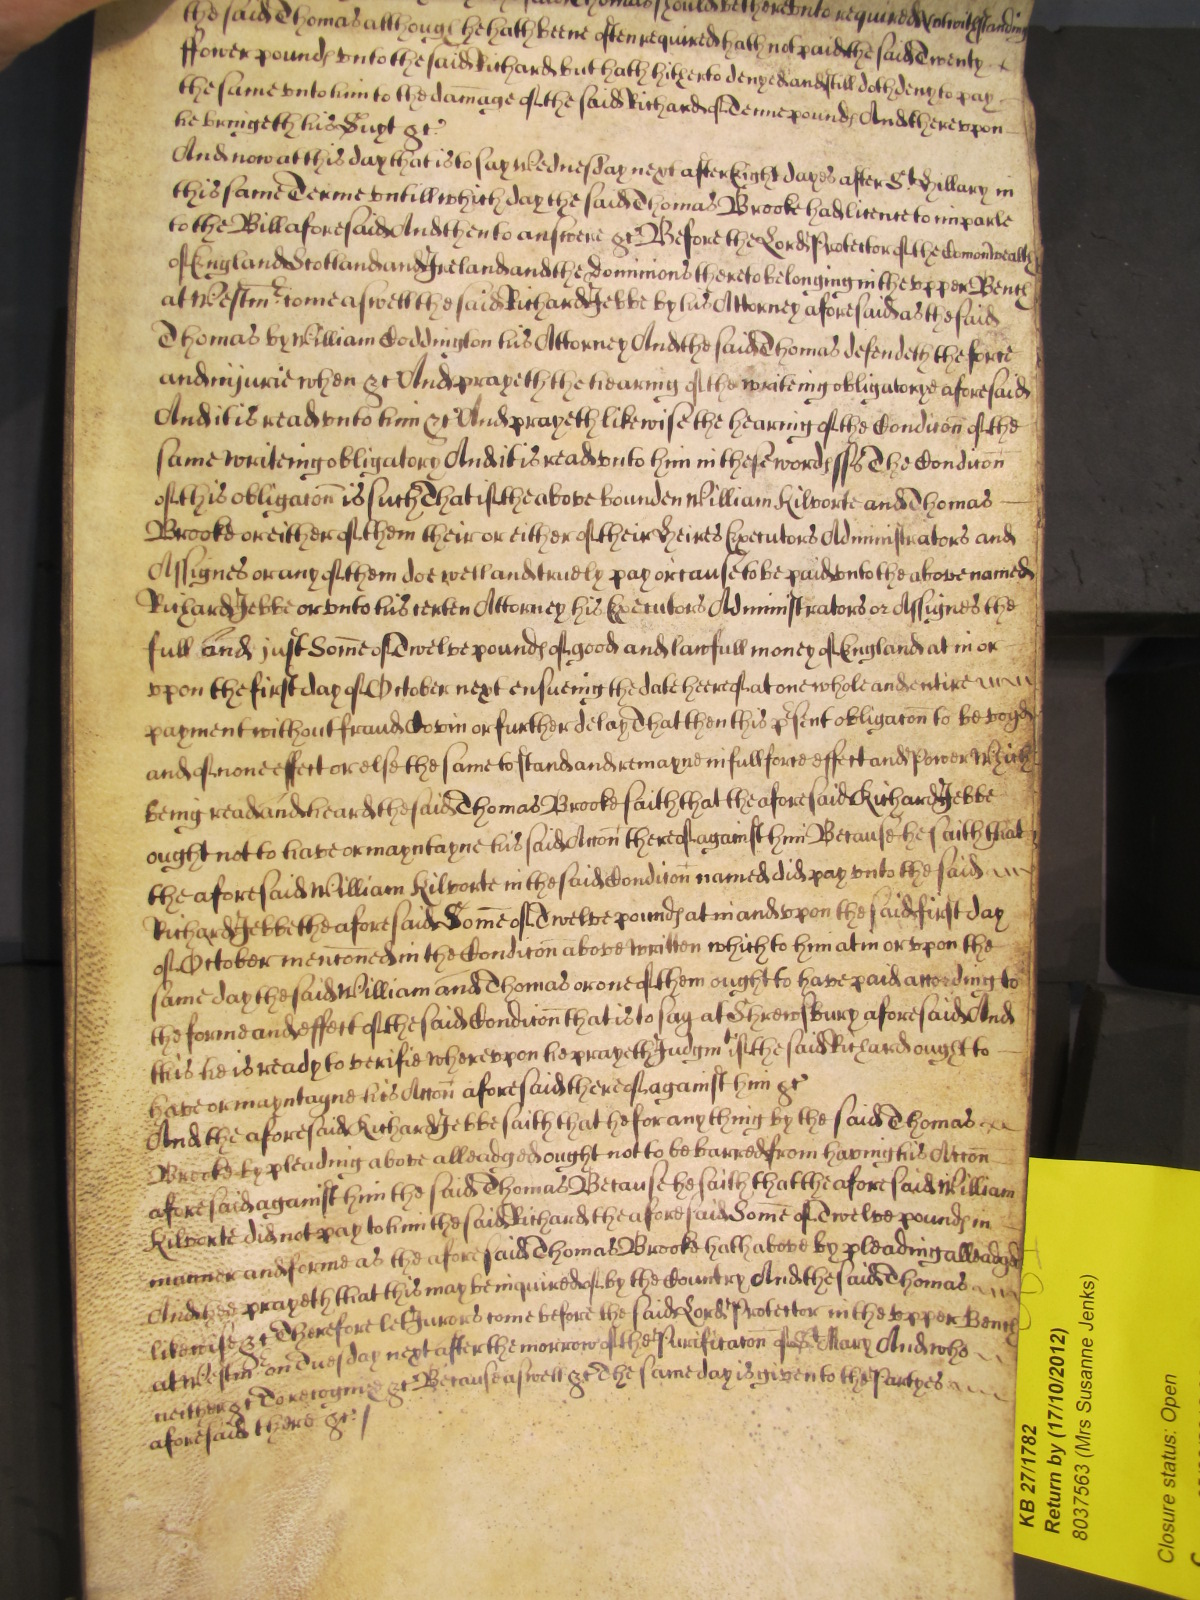 the said Thomas should be thereunto required Notwithstanding
the said Thomas although he hath beene often required hath not paid the said Twenty
ffower pounds unto the said Richard but hath hitherto denyed and still doth deny to pay
the same unto him to the damage of the said Richard of Tenne pounds And thereupon
he bringeth his Suyt &c
And now at this day that is to say Wednesday next after Eight dayes after St Hillary in
this same Terme untill which day the said Thomas Brooke had licence to imparle
to the Bill aforesaid And then to answere &c Before the Lord Protector of the Comonwealth
of England Scotland and Ireland and the Dominions thereto belonging in the upper Bench
at Westmr come aswell the said Richard Jebbe by his Attorney aforesaid as the said
Thomas by William Coddington his Attorney And the said Thomas defendeth the force
and injurie when &c And prayeth the hearing of the writeing obligatorye aforesaid
And it is read unto him &c And prayeth likewise the hearing of the Condicon of the
same writeing obligatory And it is read unto him in these words ss The Condicon
of this obligacon is such That if the above bounden William Kilvorte and Thomas
Brooke or either of them their or either of their Heires Executors Administrators and
Assignes or any of them doe well and truely pay or cause to be paid unto the above named
Richard Jebbe or unto his certen Attorney his Executors Administrators or Assignes the
full and just Some of Twelve pounds of good and lawfull money of England at in or
upon the first day of October next ensueing the date heereof at one whole and entire
payment without fraud Covin or further delay That then this psent obligacon to be voyd
and of none effect or else the same to stand and remayne in full force effect and Power Which
being read and heard the said Thomas Brooke saith that the aforesaid Richard Jebbe
ought not to have or mayntayne his said Accon thereof against him Because he saith that
the aforesaid William Kilvorte in the said Condicon named did pay unto the said
Richard Jebbe the aforesaid Some of Twelve pounds at in and upon the said first day
of October menconed in the Condicon above written which to him at in or upon the
same day the said William and Thomas or one of them ought to have paid according to
the forme and effect of the said Condicon that is to say at Shrewsbury aforesaid And
this he is ready to verifie whereupon he prayeth Judgmt if the said Richard ought to
have or mayntayne his Accon aforesaid thereof against him &c
And the aforesaid Richard Jebbe saith that he for any thing by the said Thomas
Brooke by pleading above alleadged ought not to be barred from having his Accon
aforesaid against him the said Thomas Because he saith that the aforesaid William
Kilvorte did not pay to him the said Richard the aforesaid Some of Twelve pounds in
manner and forme as the aforesaid Thomas Brooke hath above by pleading alleadged
And hee prayeth that this may be inquired of by the Country And the said Thomas
likewise &c Therefore let Jurors come before the said Lord Protector in the upper Bench
at Westmr on Tuesday next after the morrow of the Purificacon of St Mary And who
neither &c To recognize &c Because aswell &c The same day is given to the Partyes
aforesaid there &c
KB 27/1782
Return by (17/10/2012)
8037563 (Mrs Susanne Jenks)
Closure status: Open